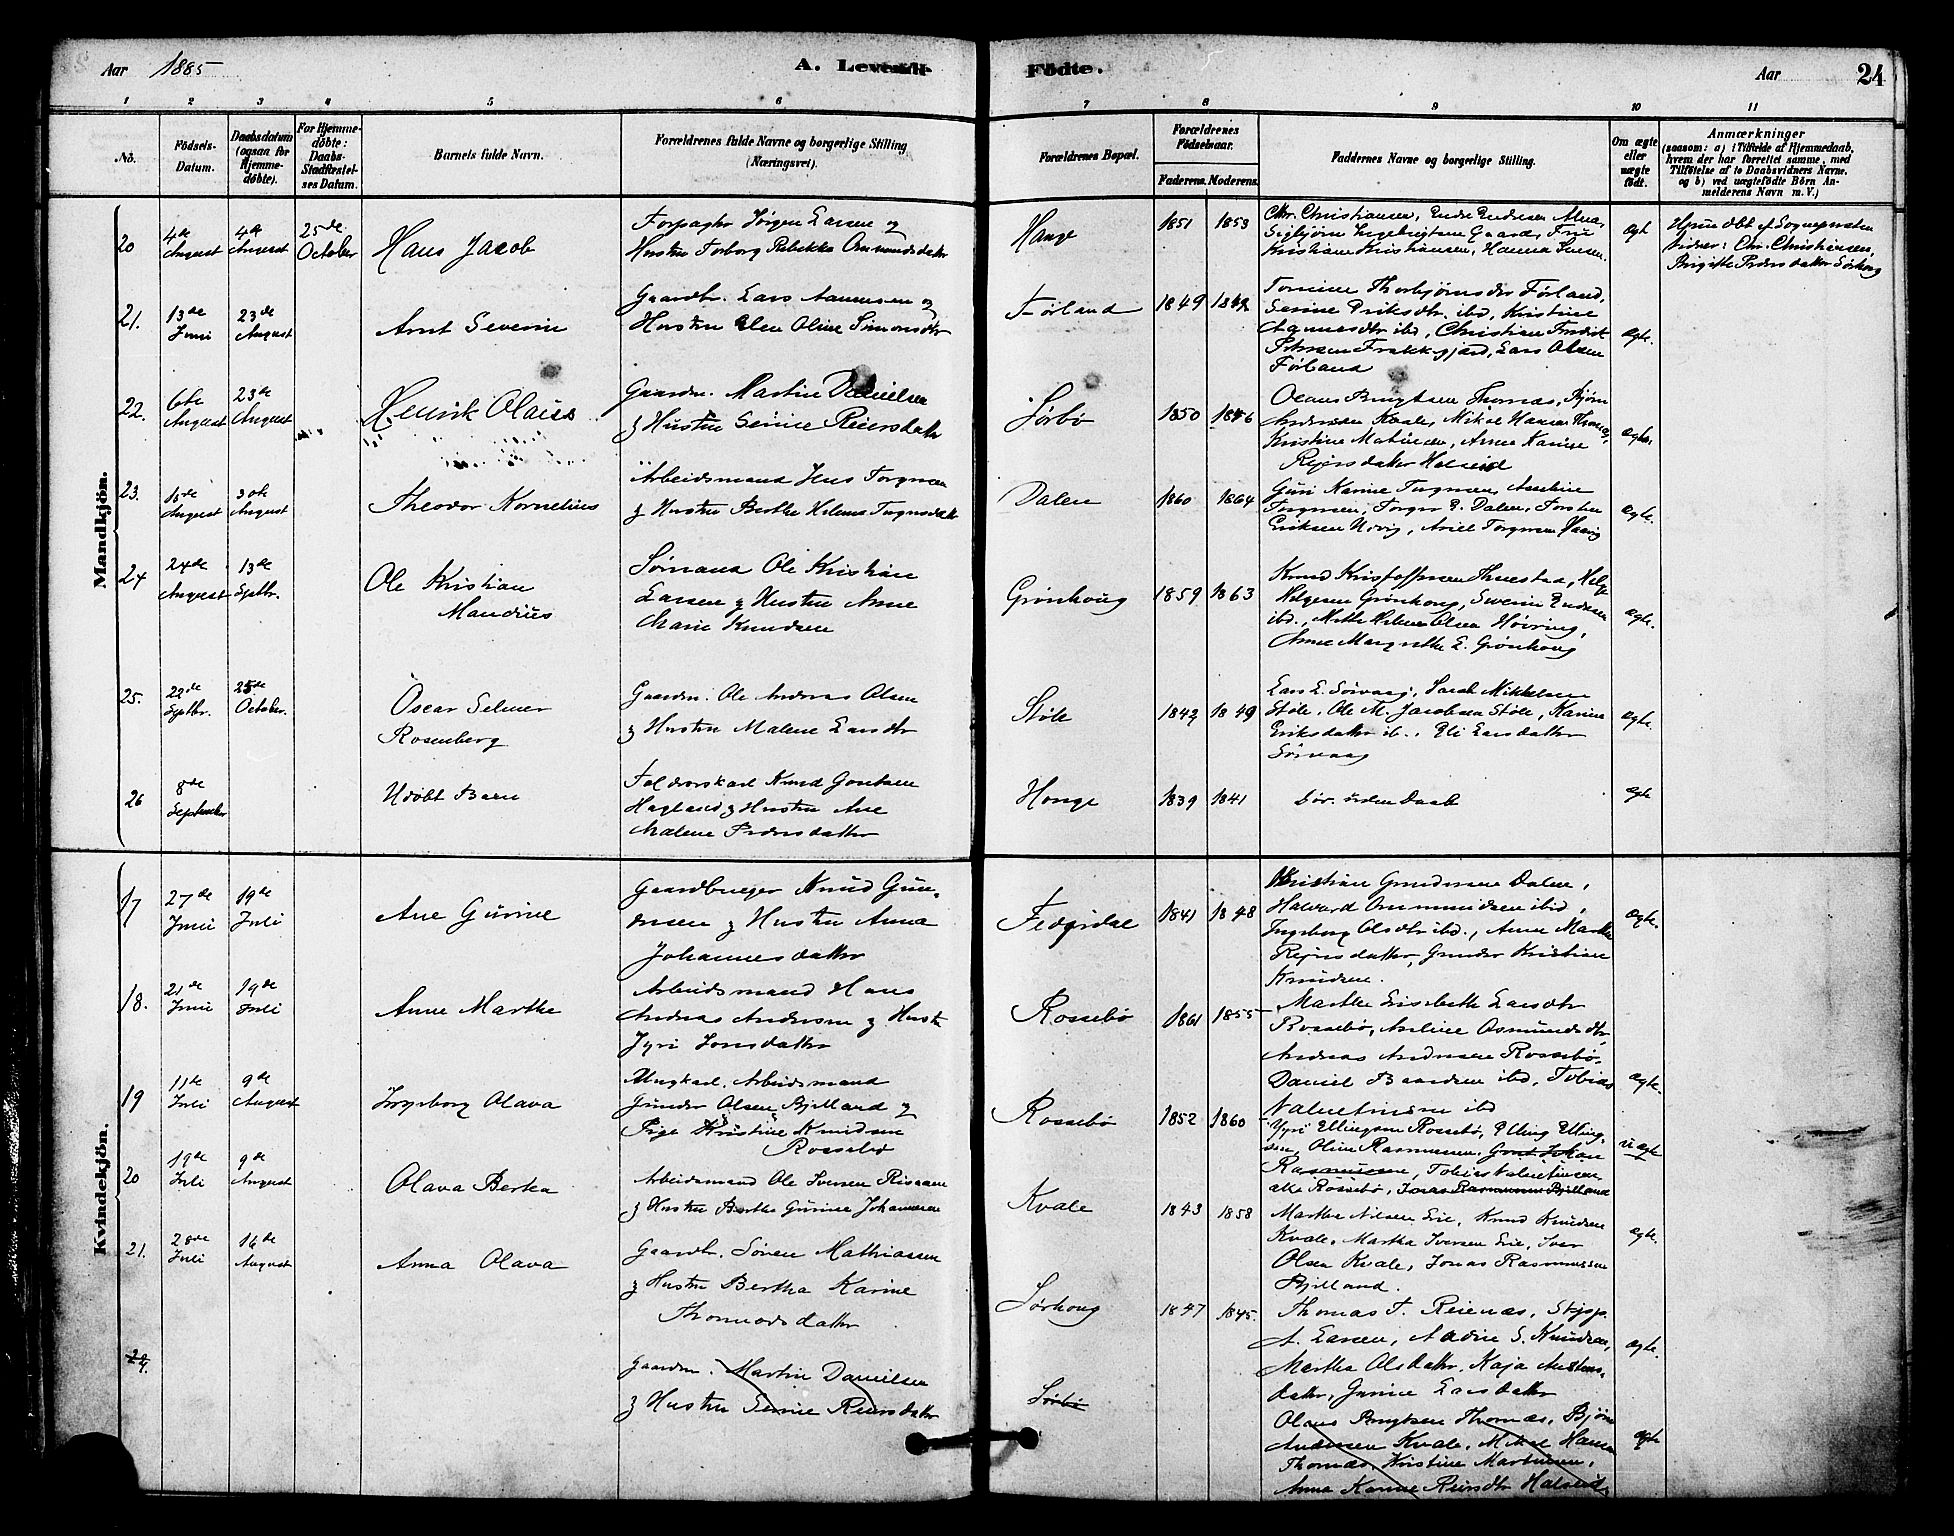 Aar 1885
A. Levende
Fødte.
Aar
24
1 2 3 4 5 6 7 8 9 10 11
No.
Fødsels-
Datum.
Daabsdatum
(ogsaa for
Hjemme-
døbte).
For Hjemme-
døbte:
Daabs-
Stadfæstel-
ses Datum.
Barnets fulde Navn.
Forældrenes fulde Navne og borgerlige Stilling
(Næringsvei).
Forældrenes Bopæl.
Forældrenes
Fødselsaar.
Faderens. Moderens.
Faddernes Navne og borgerlige Stilling.
Om ægte
eller
uægte
født.
Anmærkninger
(saasom: a) i Tilfælde af Hjemmedaab,
hvem der har forrettet samme, med
Tilføielse af to Daabsvidners Navne,
og b) ved uægtefødte Børn An-
melderens Navn m. V.)
Mandkjön.
20 4de August 4de August 25de October
Hans Jacob
Jørgen Larsen og
Hustru Torborg Rebekka Omundsdatter
Hauge 1851 1853
Chr. Christiansen, Endre Endresen
Kristiane Kristiansen, Hanna
ægt
Chr. Christiansen,
Birgitte Pedersdatter Sørhoug
21. 13de Juni 23de August
Arnt Severin
Gaardbr. Lars Aanensen og
Hustru Elen Oline Simonsdtr
Førland 1849 1842
Tomine Thorbjørnsdtr Førland,
Serine Eriksdtr. ibd, Kristine
ibd, Christian Fredrik
Petersen, Lars Olsen
Førland
ægte.
22. 6te August 23de August
Henrik Olaus
Gaardm. Martin Danielsen
& Hustru Serine Reiersdatr
Sørbø 1850 1846
Olaus Bengtsen Thomas, Bjørn
Andersen Kvale, Mikal Hansen Thomas,
Kristine Martinsen, Anna Karine
Rejersdatter Halseid
ægte.
23. 16de August 30te August
Theodor Kornelius
Arbeidsmand Jens Torgersen
& Hustru Berthe Helene
Dalen 1860 1864
Guri Karine Torgersen,
Torgersen, Torger E. Dalen, Torsten
Eriksen
ægte.
24 24de August 13de Septbr.
Ole Kristian
Maudius
Sømand Ole Kristian
Larsen & Hustru Anne
Marie Knudsen
Grønhoug 1859 1863
Knud Kristoffersen Thuestad, Helge
Helgesen Grønhoug, Severin Endresen
ibd., Mette Helene Olsen Høvring,
Anne Margrethe E. Grønhoug
ægte.
25. 22de Septbr. 25de October.
Oscar Selmer
Rosenberg
Gaardm. Ole Andreas Olsen
& Hustru Malene Larsdtr
Støle 1842 1849
Lars L. Sørvaag, Sarah Mikkelsen
Støle, Ole M. Jacobsen Støle, Karine
Eriksdatter ib., Eli Larsdatter
Sørvaag
ægte.
26 8de September
Udøbt Barn
Knud
Hagland & Hustru Ane
Malene Pedersdatter
Houge 1839 1841
Dør. uden Daab
ægte
Kvindekjön.
17 27de Juni 19de Juli
Ane Gurine
Gaardbruger Knud Gun-
dersen & Hustru Anna
Johannesdatter
1841 1848
Kristian Gundersen Dalen,
Halvard Ommundsen ibid,
Ingeborg Olsdtr ibd., Anne Marthe
Rejersdatter, Gunder Kristian
Knudsen.
ægte.
18. 21de Juni 19de Juli
Anne Marthe
Arbeidsmand Hans
Andreas Andersen & Hustru
Jyri Jonsdatter
Rossebø 1861 1855
Marthe Elisabeth Larsdtr
Rossebø, Asline Osmundsdtr,
Andreas Andersen Rossebø,
Daniel Baardsen ibd, Tobias
Valentinsen ibd
ægte.
19 11de Juli 9de August
Ingeborg Olava
Ungkarl, Arbeidsmand
Gunder Olsen Bjelland og
Pige Kristine Knudsen
Rossebø
Rossebø 1852 1860
Jyri Ellingsen Rossebø, Elling Elling-
sen, Oline Rasmussen, Johan
Rasmussen, Tobias Valentinsen
alle Rossebø, Jonas Rasmussen Bjelland
uægte
20 19de Juli 9de August
Olava Berta
Arbeidsmand Ole Iversen
& Hustru Berthe Gurine Johannesen
Kvale 1843 1858
Marthe Nilsen Lie, Knud Knudsen
Kvale, Martha Iversen Lie, Iver
Olsen Kvale, Jonas Rasmussen
Bjelland.
ægte.
21. 28de Juli 16de August
Anna Olava
Gaardbr. Søren Mathiassen
& Hustru Bertha Karine
Thomasdatter
Sørhoug 1847 1845.
Thomas T. Reienæs,
A. Larsen, S. Knudsen,
Martha Olsdatter, Kaja
datter, Gurine Larsdatter
ægte.
Gaardm. Martin Danielsen
& Hustru Serine Reiersdatr
Sørbø
Olaus Bengtsen Thomas, Bjørn
Andersen Kvale, Mikal Hansen
Thomas, Kristine Martinsen,
Anna Karine Reiersdtr Halseid,
ægte